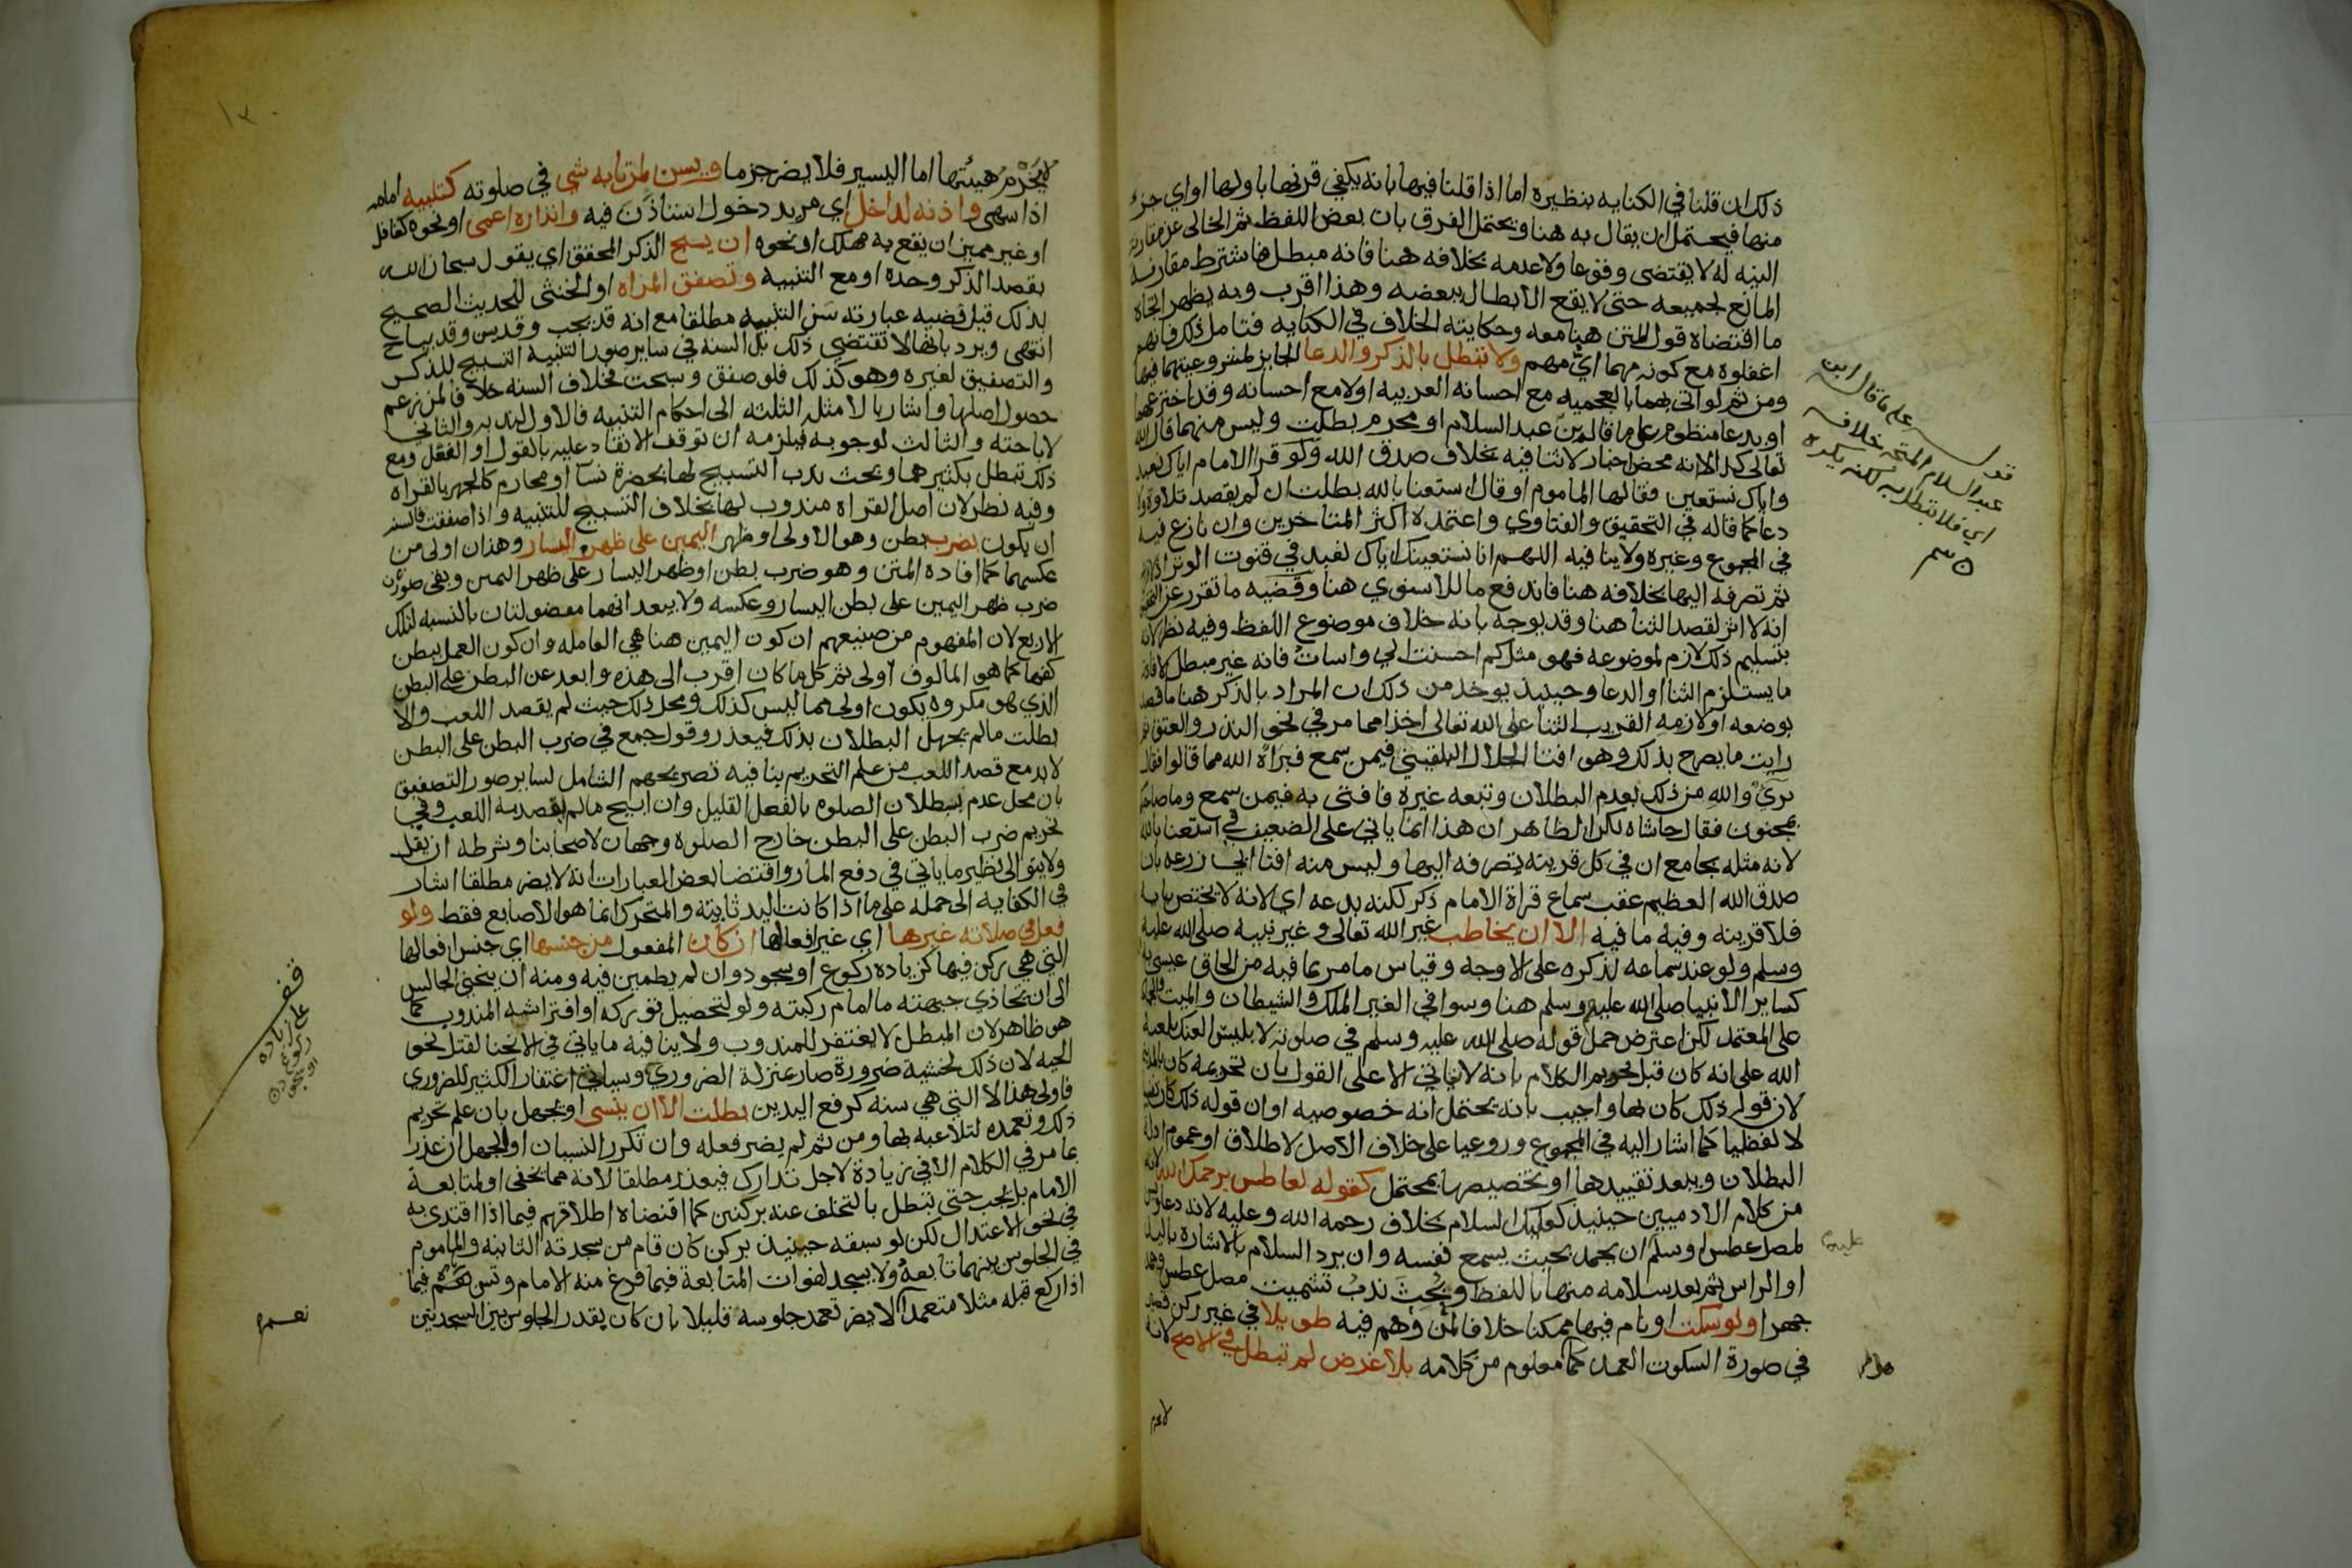 ذلك ان قلنا في الكنايه بنظيره اما اذا قلنا فيها بانه يكفي قرنها باولها او اي جزء
منها فيحتمل ان يقال به هنا ويحتمل الفرق بان بعض اللفظ ثم الخالي عن مقارنه
النيه له لا يقتضى وقوعا ولا عدمه بخلافه هنا فانه مبطل فاشترط مقارنة
المانع لجميعه حتى لا يقع الابطال ببعضه وهذا اقرب وبه يظهر اتجاه
ما اقتضاه قول المتن هنا معه وحكايته الخلاف في الكنايه فتامل ذلك فانهم
اغفلوه مع كونه مهما اي مهم ولا تبطل بالذكر والدعا الجايز لمشروعيتهما فيها
ومن ثم لو اتى بهما بالعجميه مع احسانه العربيه او لا مع احسانه وقد اخترعهما
او بدعا منظوم على ما قاله بن عبد السلام او محرم بطلت وليس منهما قال الله
تعالى كذا لانه محض اخبار لا ثنا فيه بخلاف صدق الله ولو قرا الامام اياك نعبد
واياك نستعين فقالها الماموم او قال استعنا بالله بطلت ان لم يقصد تلاوة ولا
دعا كما قاله في التحقيق والفتاوي واعتمده اكثر المتاخرين وان نازع فيه
في المجموع وغيره ولا ينافيه اللهم انا نستعينك اياك نعبد في قنوت الوتر اذ
ثم تصرفه اليها بخلافه هنا فاندفع ما للاسنوي هنا وقضيه ما تقرر عن التحقيق
انه لا اثر لقصد الثنا هنا وقد يوجه بانه خلاف موضوع اللفظ وفيه نظر لان
بتسليم ذلك لازم لموضوعه فهو مثل كم احسنت الي واسات فانه غير مبطل لافاد
ما يستلزم الثنا او الدعا وحينيذ يوخذ من ذلك ان المراد بالذكر هنا ما قصد
بوضعه او لازمه القريب الثنا على الله تعالى اخذا مما مر في نحو النذر والعتق ثم
رايت ما يصرح بذلك وهو افتا الجلال البلقيني فيمن سمع فبراه الله مما قالوا فقال
بري والله من ذلك بعدم البطلان وتبعه غيره فافتى به فيمن سمع وما صاحبكم
بمجنون فقال حاشاه لكن الظاهر ان هذا انما ياتي على الضعيف في استعنا بالله
لانه مثله بجامع ان في كل قرينه تصرفه اليها وليس منه افتا ابي زرعه بان
صدق الله العظيم عقب سماع قراة الامام ذكر لكنه بدعه اي لانه لا يختص بآيه
فلا قرينه وفيه ما فيه الا ان يخاطب غير الله تعالى وغير نبيه صلى الله عليه
وسلم ولو عند سماعه لذكره على الاوجه وقياس ما مر بما فيه من الحاق عيسى به
كساير الانبيا صلى الله عليهم وسلم هنا وسوا في الغير الملك والشيطان والميت والجماد
على المعتمد لكن اعترض حمل قوله صلى الله عليه وسلم في صلوته لابليس العنك بلعنة
الله على انه كان قبل تحريم الكلام بانه لا ياتي الا على القول بان تحريمه كان بالمدينة
لان قوله ذلك كان بها واجيب بانه يحتمل انه خصوصيه او ان قوله ذلك كان نفسيا
لا لفظيا كما اشار اليه في المجموع وروعيا على خلاف الاصل لاطلاق او عموم ادلة
البطلان ويبعد تقييدها او تخصيصها بمحتمل كقوله لعاطس يرحمك الله لانه
من كلام الادميين حينيذ كعليك السلام بخلاف رحمه الله وعليه لانه دعا ويسن
لمصل عطس او سلم ان يحمد بحيث يسمع نفسه وان يرد السلام بالاشارة باليد
او الراس ثم بعد سلامه منها باللفظ وبحث ندب تشميت مصل عطس وحمد
جهرا ولو سكت او نام فيها ممكنا خلافا لمن وهم فيه طويلا في غير ركن قصير
في صورة السكون العمد كما معلوم من كلامه بلا غرض لم تبطل في الاصح لانه
لا يخرم
قوله على ما قال ابن
عبد السلام المتجه خلافه
اي فلا تبطل به لكنه يكره
لا يخرم هيئتها اما اليسير فلا يضر جزما ويسن لمن نابه شي في صلوته كتنبيه امامه
اذا سهى واذنه لداخل اي مريد دخول استاذن فيه وانذاره اعمى او نحوه كغافل
او غير مميز ان يقع به مهلك او نحوه ان يسبح الذكر المحقق اي يقول سبحان الله
بقصد الذكر وحده او مع التنبيه وتصفق المراه او الخنثى للحديث الصحيح
بذلك قيل قضيه عبارته سن التنبيه مطلقا مع انه قد يجب وقد يسن وقد يباح
انتهى ويرد بانها لا تقتضي ذلك بل السنه في ساير صور التنبيه التسبيح للذكر
والتصفيق لغيره وهو كذلك فلو صفق وسبحت فخلاف السنه خلافا لمن زعم
حصول اصلها واشار بالامثله الثلثه الى احكام التنبيه فالاول لندبه والثاني
لاباحته والثالث لوجوبه فيلزمه ان توقف الانقاذ عليه بالقول او الفعل ومع
ذلك تبطل بكثيرهما وبحث ندب التسبيح لها بحضرة نسا او محارم كالجهر بالقراه
وفيه نظر لان اصل القراه مندوب لها بخلاف التسبيح للتنبيه واذا صفقت فالسنه
ان يكون بضرب بطن وهو الاولى او ظهر اليمين على ظهر اليسار وهذان اولى من
عكسهما كما افاده المتن وهو ضرب بطن او ظهر اليسار على ظهر اليمين وبقى صورتان
ضرب ظهر اليمين على بطن اليسار وعكسه ولا يبعد انهما مفضولتان بالنسبه لتلك
الاربع لان المفهوم من صنيعهم ان كون اليمين هنا هي العامله وان كون العمل ببطن
كفها كما هو المالوف اولى ثم كل ما كان اقرب الى هذه وابعد عن البطن على البطن
الذي هو مكروه يكون اولى مما ليس كذلك ومحل ذلك حيث لم يقصد اللعب والا
بطلت مالم يجهل البطلان بذلك فيعذر وقول جمع في ضرب البطن على البطن
لا بد مع قصد اللعب من علم التحريم ينافيه تصريحهم الشامل لساير صور التصفيق
بان محل عدم بطلان الصلوه بالفعل القليل وان ابيح مالم يقصد به اللعب وفي
تحريم ضرب البطن على البطن خارج الصلوه وجهان لاصحابنا وشرطه ان يقل
ولا يتوالى نظير ما ياتي في دفع المار واقتضا بعض العبارات انه لا يضر مطلقا اشار
في الكفايه الى حمله على ما اذا كانت اليد ثابته والمتحرك انما هو الاصابع فقط ولو
فعل في صلاته غيرها اي غير افعالها ان كان المفعول من جنسها اي جنس افعالها
التي هي ركن فيها كزياده ركوع او سجود وان لم يطمين فيه ومنه ان ينحني الجالس
الى ان تحاذي جبهته ما امام ركبته ولو لتحصيل توركه او افتراشه المندوب كما
هو ظاهر لان المبطل لا يغتفر للمندوب ولا ينافيه ما ياتي في الانحنا لقتل نحو
الحيه لان ذلك لخشية ضرورة صار بمنزلة الضروري وسياتي اغتفار الكثير للضروري
فاولى هذا لا التي هي سنه كرفع اليدين بطلت الا ان ينسى او يجهل بان علم تحريم
ذلك وتعمده لتلاعبه بها ومن ثم لم يضر فعله وان تكرر النسيان او الجهل ان عذر
بما مر في الكلام الا في زيادة لاجل تدارك فيعذر مطلقا لانه مما يخفى او لمتابعة
الامام بل يجب حتى تبطل بالتخلف عنه بركنين كما اقتضاه اطلاقهم فيما اذا اقتدى به
في نحو الاعتدال لكن لو سبقه حينيذ بركن كان قام من سجدته الثانيه والماموم
في الجلوس بينهما تابعه ولا يسجد لفوات المتابعة فيما فرغ منه الامام وتسن فيما
اذا ركع قبله مثلا متعمدا لا يضر تعمد جلوسه قليلا بان كان بقدر الجلوس بين السجدتين
قف
على زياده
ركوع